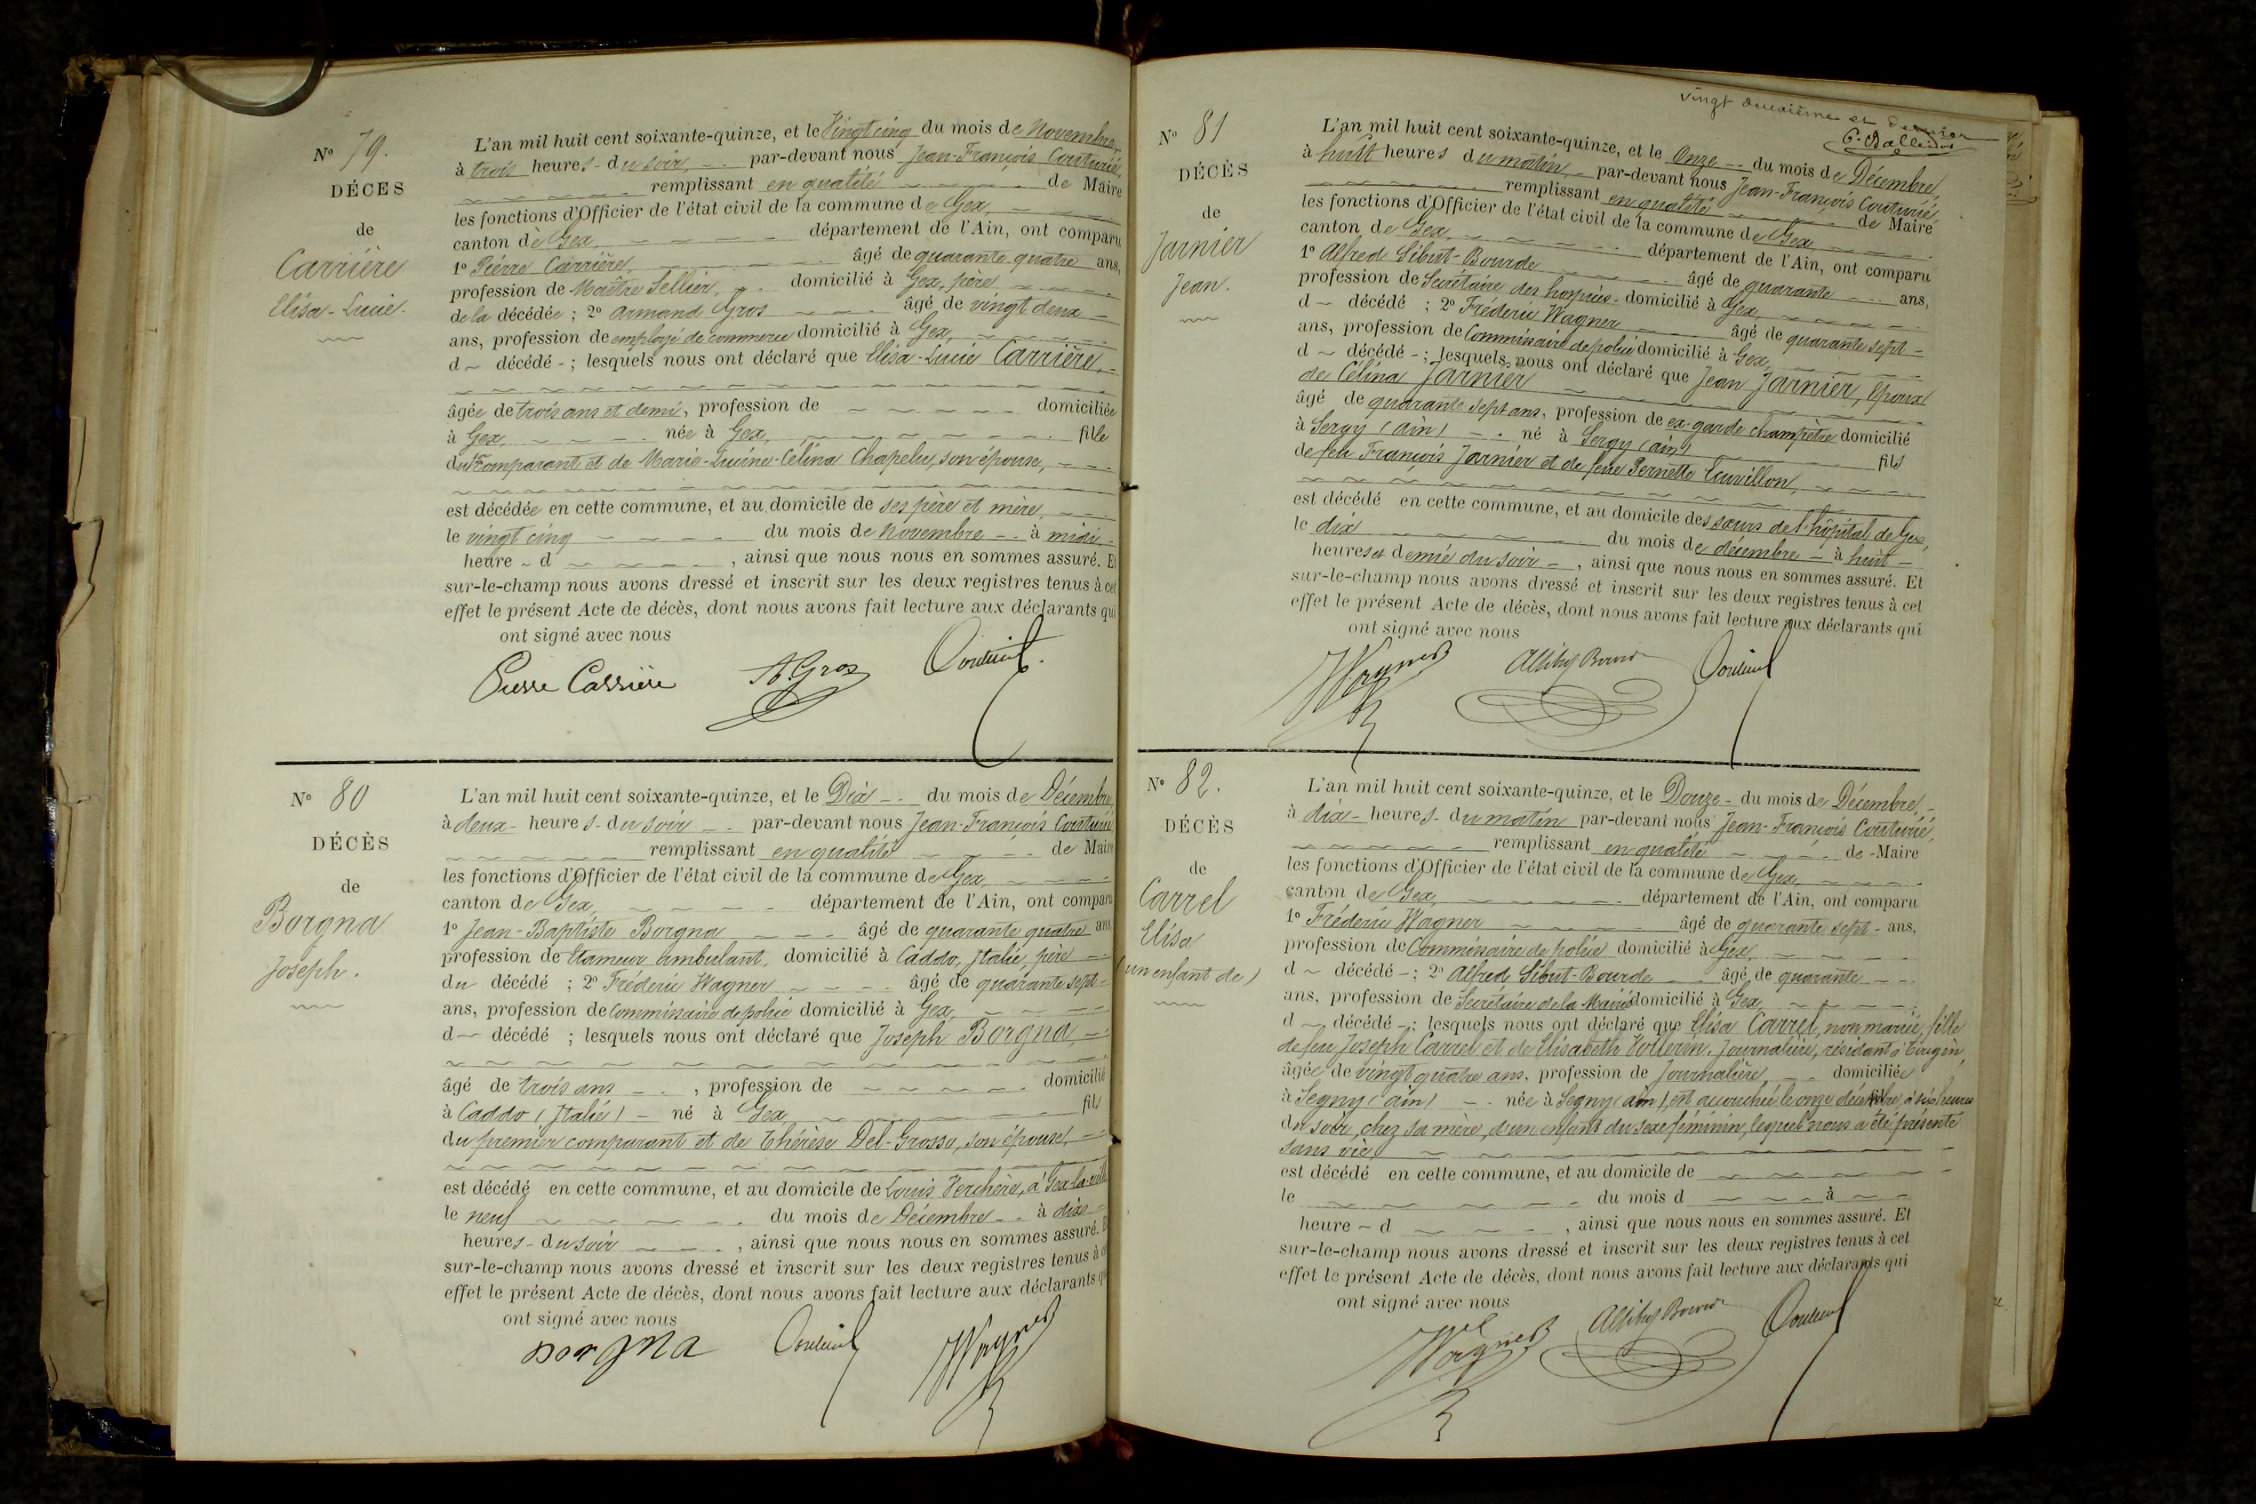 Nº 79.
DÉCES
de
Carrière
Elisa-Lucie.
L'an mil huit cent soixante-quinze, et le Vingt cinq du mois de Novembre,
à trois heures du soir, par-devant nous Jean-François Couturié,
remplissant en qualité de Maire
les fonctions d'Officier de l'état civil de la commune de Gex,
canton de Gex, département de l'Ain, ont comparu
1º Pierre Carrière, âgé de quarante quatre ans,
profession de Maître Sellier, domicilié à Gex, père
de la décédée ; 2º Armand Gros âgé de vingt deux
ans, profession de employé de commerce domicilié à Gex,
d décédé ; lesquels nous ont déclaré que Elisa-Lucie Carrière,
âgée de trois ans et demi, profession de domiciliée
à Gex, née à Gex, fille
du 1er comparant et de Marie-Lucine-Célina Chapelu, son épouse,
est décédée en cette commune, et au domicile de ses père et mère,
le vingt cinq du mois de Novembre à midi,
heure d , ainsi que nous nous en sommes assuré. Et
sur-le-champ nous avons dressé et inscrit sur les deux registres tenus à cet
effet le présent Acte de décès, dont nous avons fait lecture aux déclarants qui
ont signé avec nous
Pierre Carrière A Gros Couturié
Nº 80
DÉCÈS
de
Borgna
Joseph.
L'an mil huit cent soixante-quinze, et le Dix du mois de Décembre,
à deux heures du soir par-devant nous Jean-François Couturié
remplissant en qualité de Maire
les fonctions d'Officier de l'état civil de la commune de Gex,
canton de Gex, département de l'Ain, ont comparu
1º Jean-Baptiste Borgna âgé de quarante quatre ans
profession de Etameur ambulant, domicilié à Caddo, Italie, père
du décédé ; 2º Fréderic Wagner âgé de quarante sept
ans, profession de Commissaire de police domicilié à Gex,
d décédé ; lesquels nous ont déclaré que Joseph Borgna,
âgé de trois ans , profession de domicilié
à Caddo (Italie) né à Gex, fils
du premier comparant et de Thérèse Del-Grosso, son épouse,
est décédé en cette commune, et au domicile de Louis Verchère, à Gex-la-ville
le neuf du mois de Décembre à dix
heures du soir , ainsi que nous nous en sommes assuré. Et
sur-le-champ nous avons dressé et inscrit sur les deux registres tenus à cet
effet le présent Acte de décès, dont nous avons fait lecture aux déclarants qui
ont signé avec nous
Borgna Couturié Wagner
vingt deuxième et dernier
Nº 81
DÉCÈS
de
Jarnier
Jean.
L'an mil huit cent soixante-quinze, et le Onze du mois de Décembre,
à huit heures du matin, par-devant nous Jean-François Couturié,
remplissant en qualité de Maire
les fonctions d'Officier de l'état civil de la commune de Gex
canton de Gex, département de l'Ain, ont comparu
1º Alfred Sibut-Bourde âgé de quarante ans,
profession de Secrétaire des hospices domicilié à Gex,
d décédé ; 2º Fréderic Wagner âgé de quarante sept
ans, profession de Commissaire de police domicilié à Gex,
d décédé ; lesquels nous ont déclaré que Jean Jarnier, époux
de Célina Jarnier
âgé de quarante sept ans, profession de ex-garde champêtre domicilié
à Sergy (ain) né à Sergy (ain) fils
de feu François Jarnier et de feue Pernette Couvillon,
est décédé en cette commune, et au domicile des sœurs de l'hôpital de Gex,
le dix du mois de décembre à huit
heures et demie du soir , ainsi que nous nous en sommes assuré. Et
sur-le-champ nous avons dressé et inscrit sur les deux registres tenus à cet
effet le présent Acte de décès, dont nous avons fait lecture aux déclarants qui
ont signé avec nous
Wagner ASibut Bourde Couturié
Nº 82.
DÉCÈS
de
Carrel
Elisa
(un enfant de)
L'an mil huit cent soixante-quinze, et le Douze du mois de Décembre,
à dix heures du matin par-devant nous Jean-François Couturié,
remplissant en qualité de Maire
les fonctions d'Officier de l'état civil de la commune de Gex,
canton de Gex, département de l'Ain, ont comparu
1º Fréderic Wagner âgé de quarante sept ans,
profession de Commissaire de police domicilié à Gex,
d décédé ; 2º Alfred Sibut-Bourde âgé de quarante
ans, profession de Secrétaire de la Mairie domicilié à Gex,
d décédé ; lesquels nous ont déclaré que Elisa Carrel, non mariée, fille
de feu Joseph Carrel et de Elisabeth Vullerin, Journalière, résidant à
âgée de vingt quatre ans, profession de Journalière, domiciliée
à Segny (ain) née à Segny (ain), est accouchée le onze décembre, à six heures
du soir, chez sa mère, d'un enfant du sexe féminin, lequel nous a été présenté
sans vie,
est décédé en cette commune, et au domicile de
le du mois d à
heure d , ainsi que nous nous en sommes assuré. Et
sur-le-champ nous avons dressé et inscrit sur les deux registres tenus à cet
effet le présent Acte de décès, dont nous avons fait lecture aux déclarants qui
ont signé avec nous
Wagner ASibut Bourde Couturié